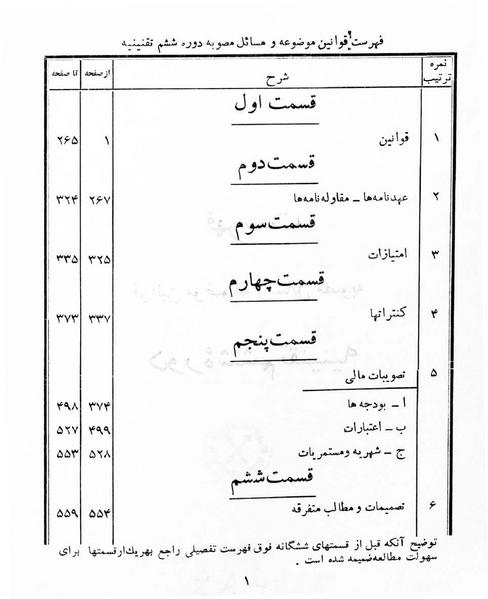 فهرست قوانین موضوعه و مسائل مصوبه دوره ششم تقنینیه
نمره ترتیب شرح از صفحه تا صفحه
قسمت اول
۱ قوانین ۱ ۲۶۵
قسمت دوم
۲ عهدنامه‌ها ـ مقاوله‌نامه‌ها ۲۶۷ ۳۲۴
قسمت سوم
۳ امتیازات ۳۲۵ ۳۳۵
قسمت چهارم
۴ کنتراتها ۳۳۷ ۳۷۳
قسمت پنجم
۵ تصویبات مالی
ا ـ بودجه ها ۳۷۴ ۴۹۸
ب ـ اعتبارات ۴۹۹ ۵۲۷
ج ـ شهریه و مستمریات ۵۲۸ ۵۵۳
قسمت ششم
۶ تصمیمات و مطالب متفرقه ۵۵۴ ۵۵۹
توضیح آنکه قبل از قسمتهای ششگانه فوق فهرست تفصیلی راجع بهریك ازقسمتها برای
سهولت مطالعه ضمیمه شده است .
۱